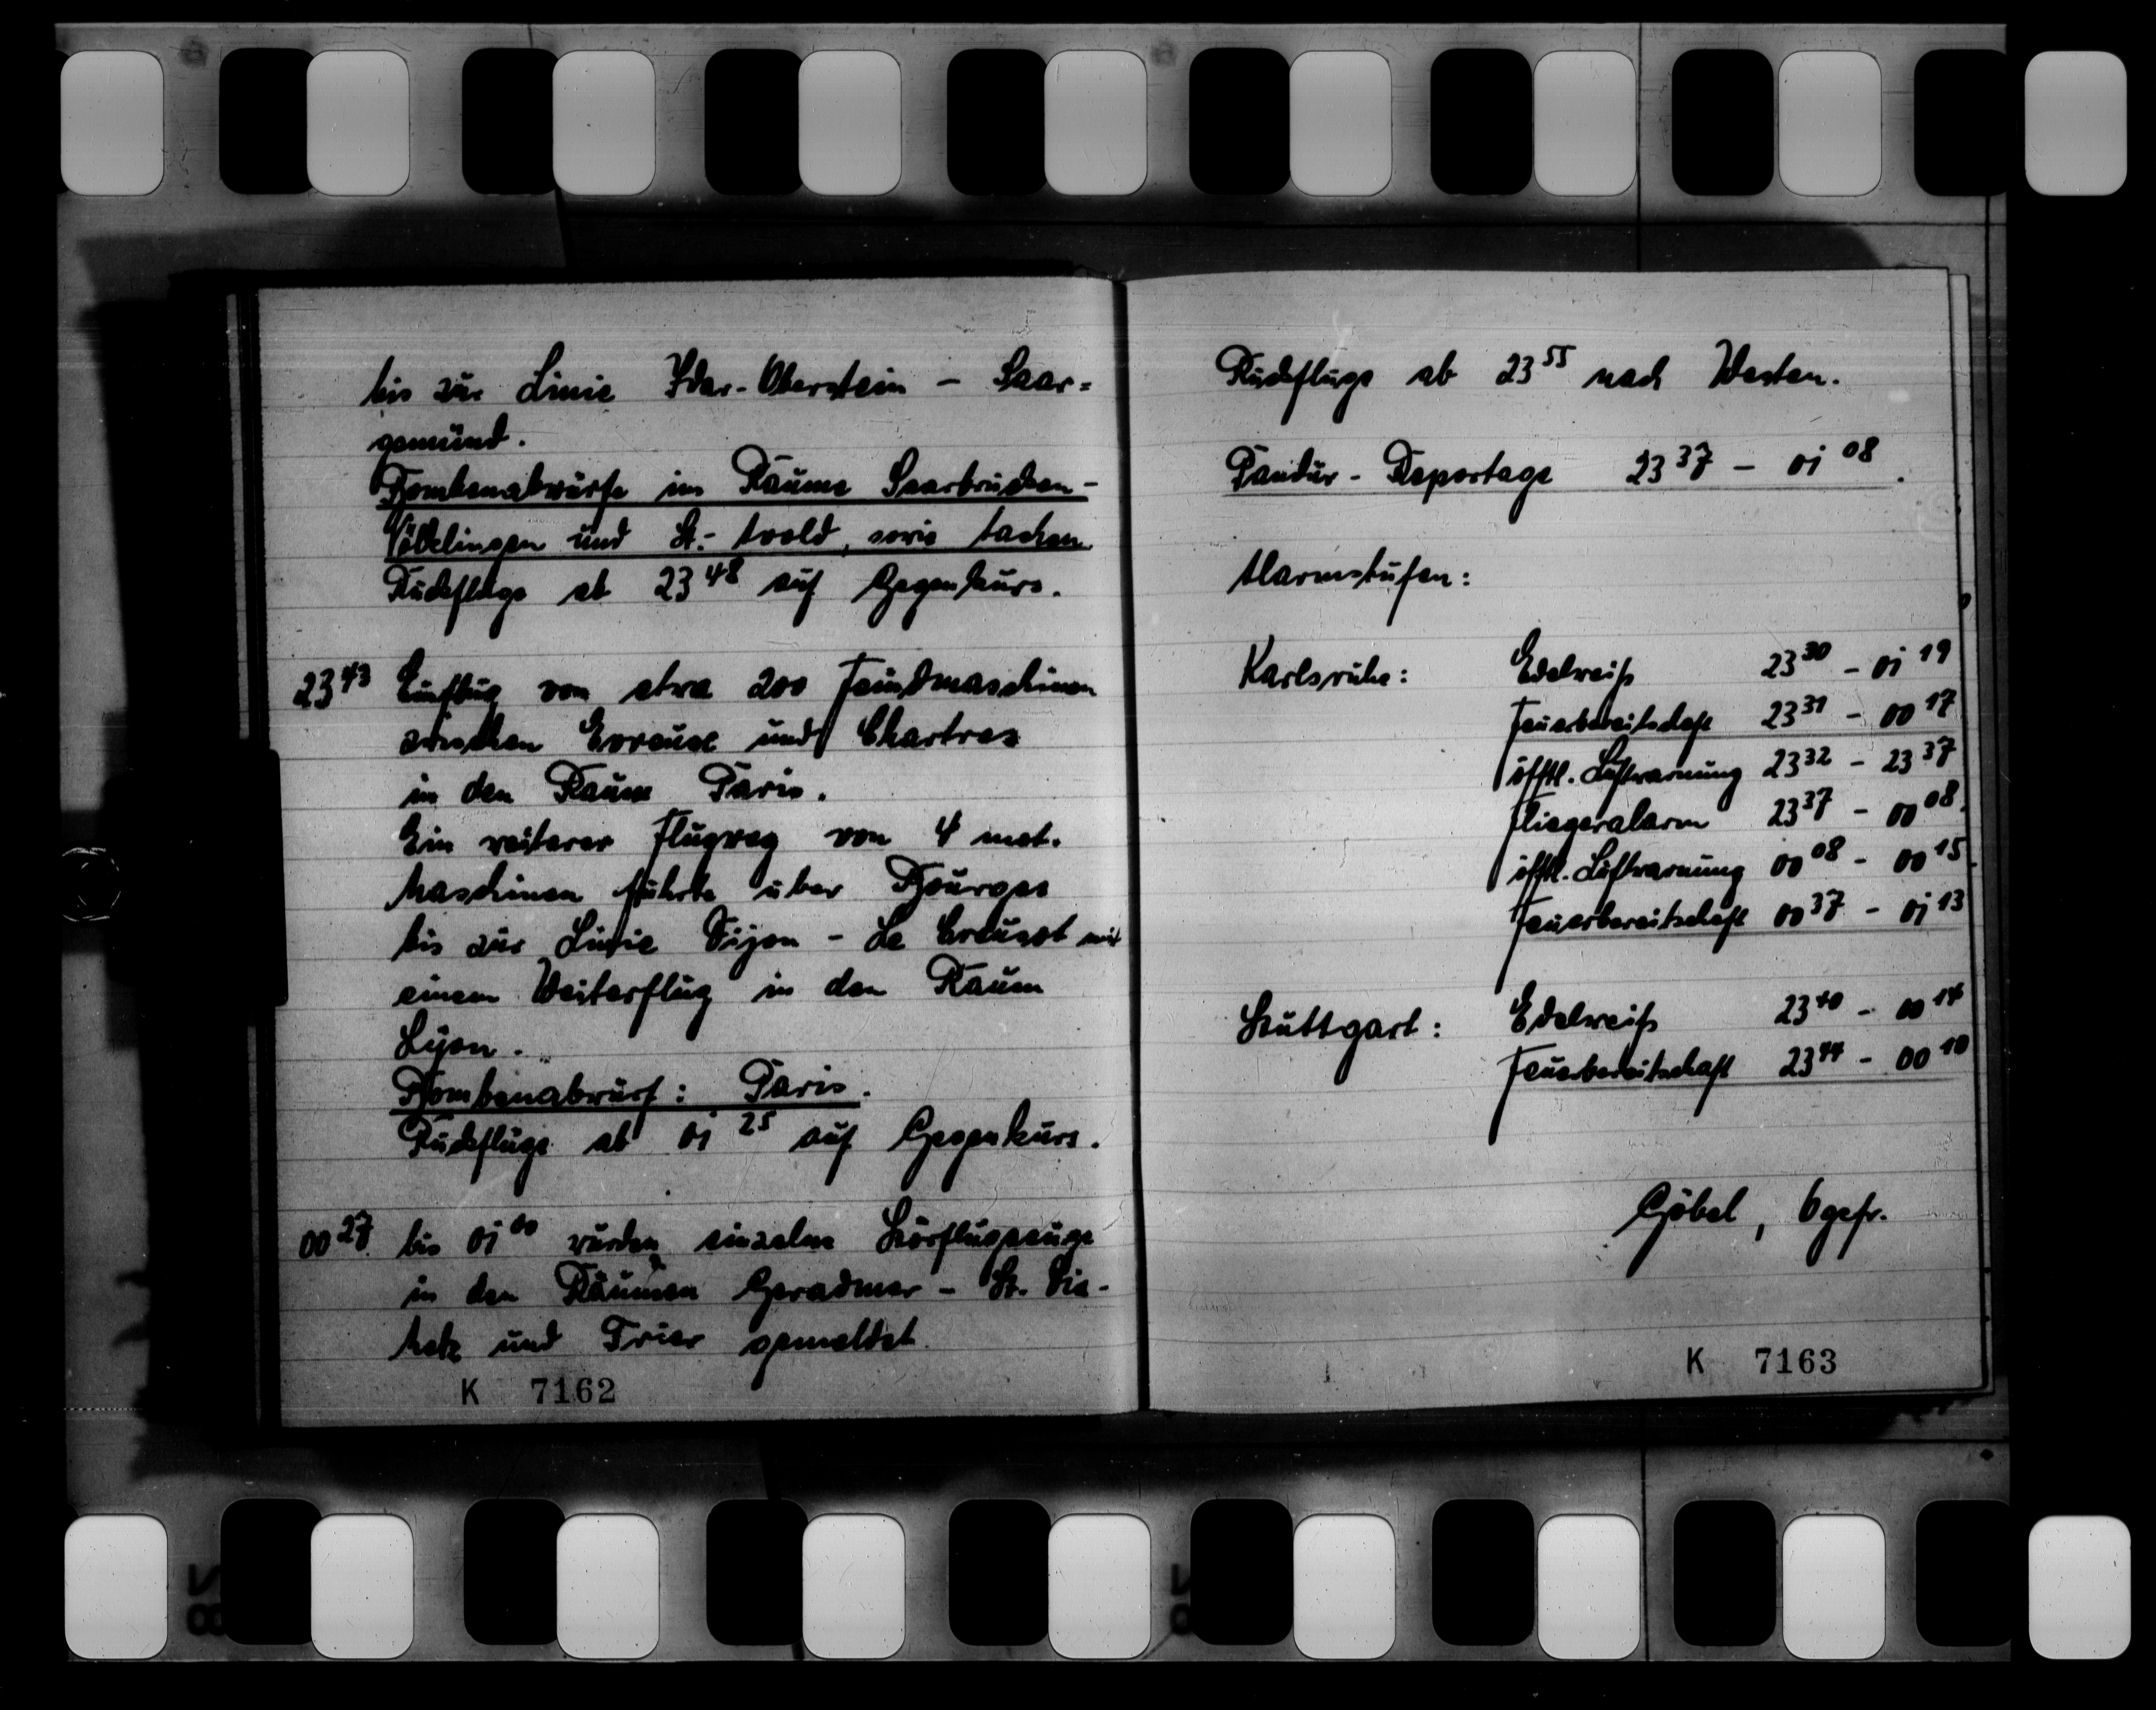 bis zur Linie Idar-Oberstein – Saar=
gemünd.
Bombenabwürfe im Raume Saarbrücken –
Völklingen und St.- Avold, sowie Aachen.
Rückflüge ab 23 48 auf Gegenkurs.
23 43 Einflug von etwa 200 Feindmaschinen
zwischen Evreuxe und Chartres
in den Raum Paris.
Ein weiterer Flugweg von 4 mot.
Maschinen führte über Bourges
bis zur Linie Dijon – Le Creusot mit
einem Weiterflug in den Raum
Lyon.
Bombenabwurf: Paris.
Rückflüge ab 01 25 auf Gegenkurs.
00 27 bis 01 00 wurden einzelne Störflugzeuge
in den Räumen Geradmer – St. Die –
Metz und Trier gemeldet.
K 7162
Rückflüge ab 23 55 nach Westen.
Pandur - Reportage 23 37 – 01 08.
Alarmstufen:
Karlsruhe: Edelweiß 23 30 – 01 19
Feuerbereitschaft 23 31 – 00 17
öfftl. Luftwarnung 23 32 – 23 37
Fliegeralarm 23 37 – 00 08.
öfftl. Luftwarnung 00 08 – 00 15.
Feuerbereitschaft 00 37 – 01 13
Stuttgart: Edelweiß 23 40 – 00 14
Feuerbereitschaft 23 44 – 00 10
Göbel, Ogefr.
K 7163
28
28